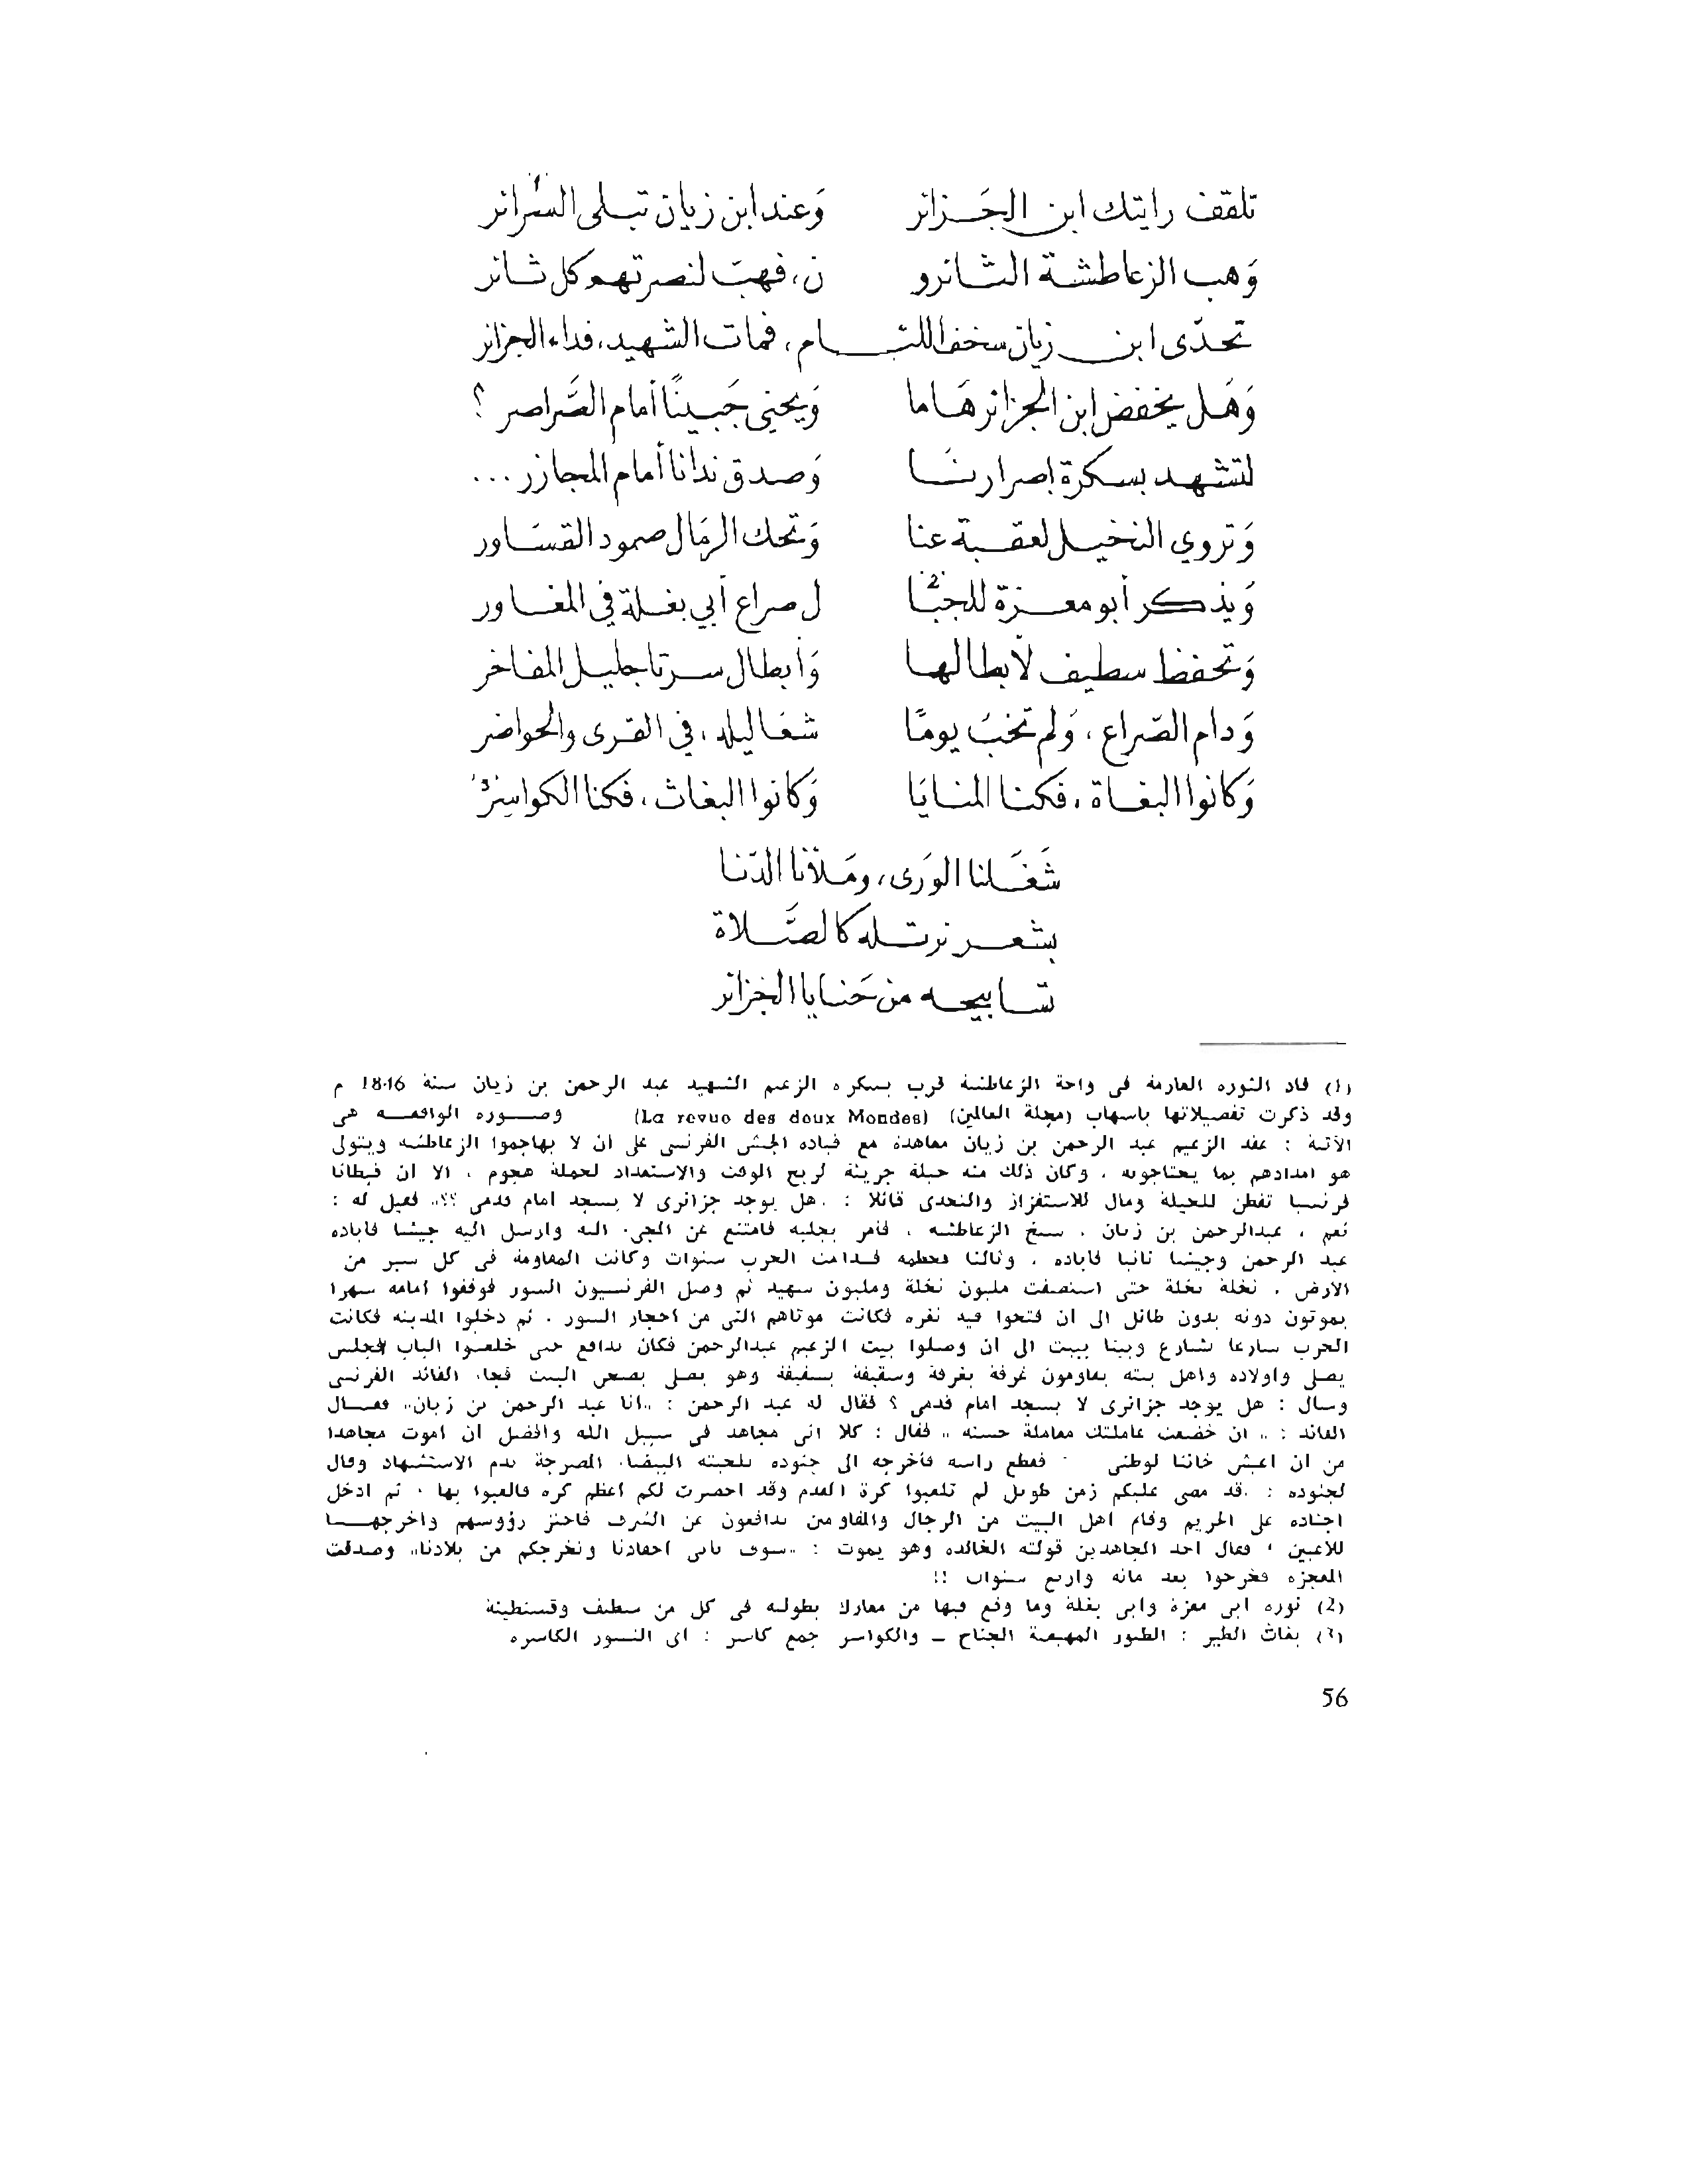 تلقف رايتك ابن الجَزائر وَعند ابن زيان تبلى السّرائر¹
وَهب الزعاطشة الثائرو ن، فهبّ لنصرتهم كل ثائر
تحدّى ابن زيان سخف اللئام، فمات الشهيد، فداء الجزائر
وَهَل يخفض ابن الجزائر هَاما وَيحني جَبينًا أمام الصَّراصر ؟
لتشهد بسكرة إصرارنَا وَصدق ندانا أمام المجازر ...
وَتروي النخيل لعقبة عنا وَتحك الرمَال صمود القسَاور
وَيذكر أبو معزة للجبَا² ل صراع أبي بغلة في المغاور
وَتحفظ سطيف لأبطالها وَأبطال سرتا جليل المفاخر
وَدام الصّراع، وَلم تخبُ يومًا شغاليله، في القرى والحواضر
وَكانوا البغاة، فكنا المنايَا وَكانوا البغاث، فكنا الكواسر³
شَغَلنا الوَرى، ومَلأنا الدّنا
بشعر نرتله كالصَّلاة
تسابيحه من حَنايا الجزائر
(1) قاد الثورة العارمة في واحة الزعاطشة قرب بسكرة الزعيم الشهيد عبد الرحمن بن زيان سنة 1846 م
وقد ذكرت تفصيلاتها باسهاب (مجلة العالمين) (La revue des deux Mondes) وصورة الواقعة هي
الآتية : عقد الزعيم عبد الرحمن بن زيان معاهدة مع قيادة الجيش الفرنسي على ان لا يهاجموا الزعاطشة ويتولى
هو امدادهم بما يحتاجونه ، وكان ذلك منه حيلة جريئة لربح الوقت والاستعداد لحملة هجوم ، الا ان قبطانا
فرنسيا تفطن للحيلة ومال للاستفزاز والتحدي قائلا : «هل يوجد جزائري لا يسجد امام قدمي ؟؟» فقيل له :
نعم ، عبدالرحمن بن زيان ، شيخ الزعاطشة ، فأمر بجلبه فامتنع عن المجيء اليه وارسل اليه جيشا فاباده
عبد الرحمن وجيشا ثانيا فاباده ، وثالثا فحطمه فدامت الحرب سنوات وكانت المقاومة في كل شبر من
الارض ، نخلة نخلة حتى استصفت مليون نخلة ومليون شهيد ثم وصل الفرنسيون السور فوقفوا امامه شهرا
يموتون دونه بدون طائل الى ان فتحوا فيه ثغرة فكانت موتاهم اكثر من احجار السور . ثم دخلوا المدينة فكانت
الحرب شارعا شارع وبيتا ببيت الى ان وصلوا بيت الزعيم عبدالرحمن فكان يدافع حتى خلعوا الباب فجلس
يصلي واولاده واهل بيته يقاومون غرفة بغرفة وسقيفة بسقيفة وهو يصلي بصحن البيت فجاء القائد الفرنسي
وسال : هل يوجد جزائري لا يسجد امام قدمي ؟ فقال له عبد الرحمن : «انا عبد الرحمن بن زيان» فقال
القائد : « ان خضعت عاملتك معاملة حسنة » فقال : كلا اني مجاهد في سبيل الله وافضل ان اموت مجاهدا
من ان اعيش خائنا لوطني فقطع راسه فأخرجه الى جنوده بلحيته البيضاء المضرجة بدم الاستشهاد وقال
لجنوده : «قد مضى عليكم زمن طويل لم تلعبوا كرة القدم وقد احضرت لكم اعظم كرة فالعبوا بها» ثم ادخل
اجناده على الحريم وقام اهل البيت من الرجال والمقاومين يدافعون عن الشرف فاحتز رؤوسهم واخرجها
للاعبين ، فقال احد المجاهدين قولته الخالدة وهو يموت : «سوف ياتي احفادنا ونخرجكم من بلادنا» وصدقت
المعجزة فخرجوا بعد مائة واربع سنوات !!
(2) ثورة ابي معزة وابي بغلة وما وقع فيها من معارك بطولية في كل من سطيف وقسنطينة
(3) بغاث الطير : الطيور المهيضة الجناح – والكواسر جمع كاسر : اي النسور الكاسرة
56